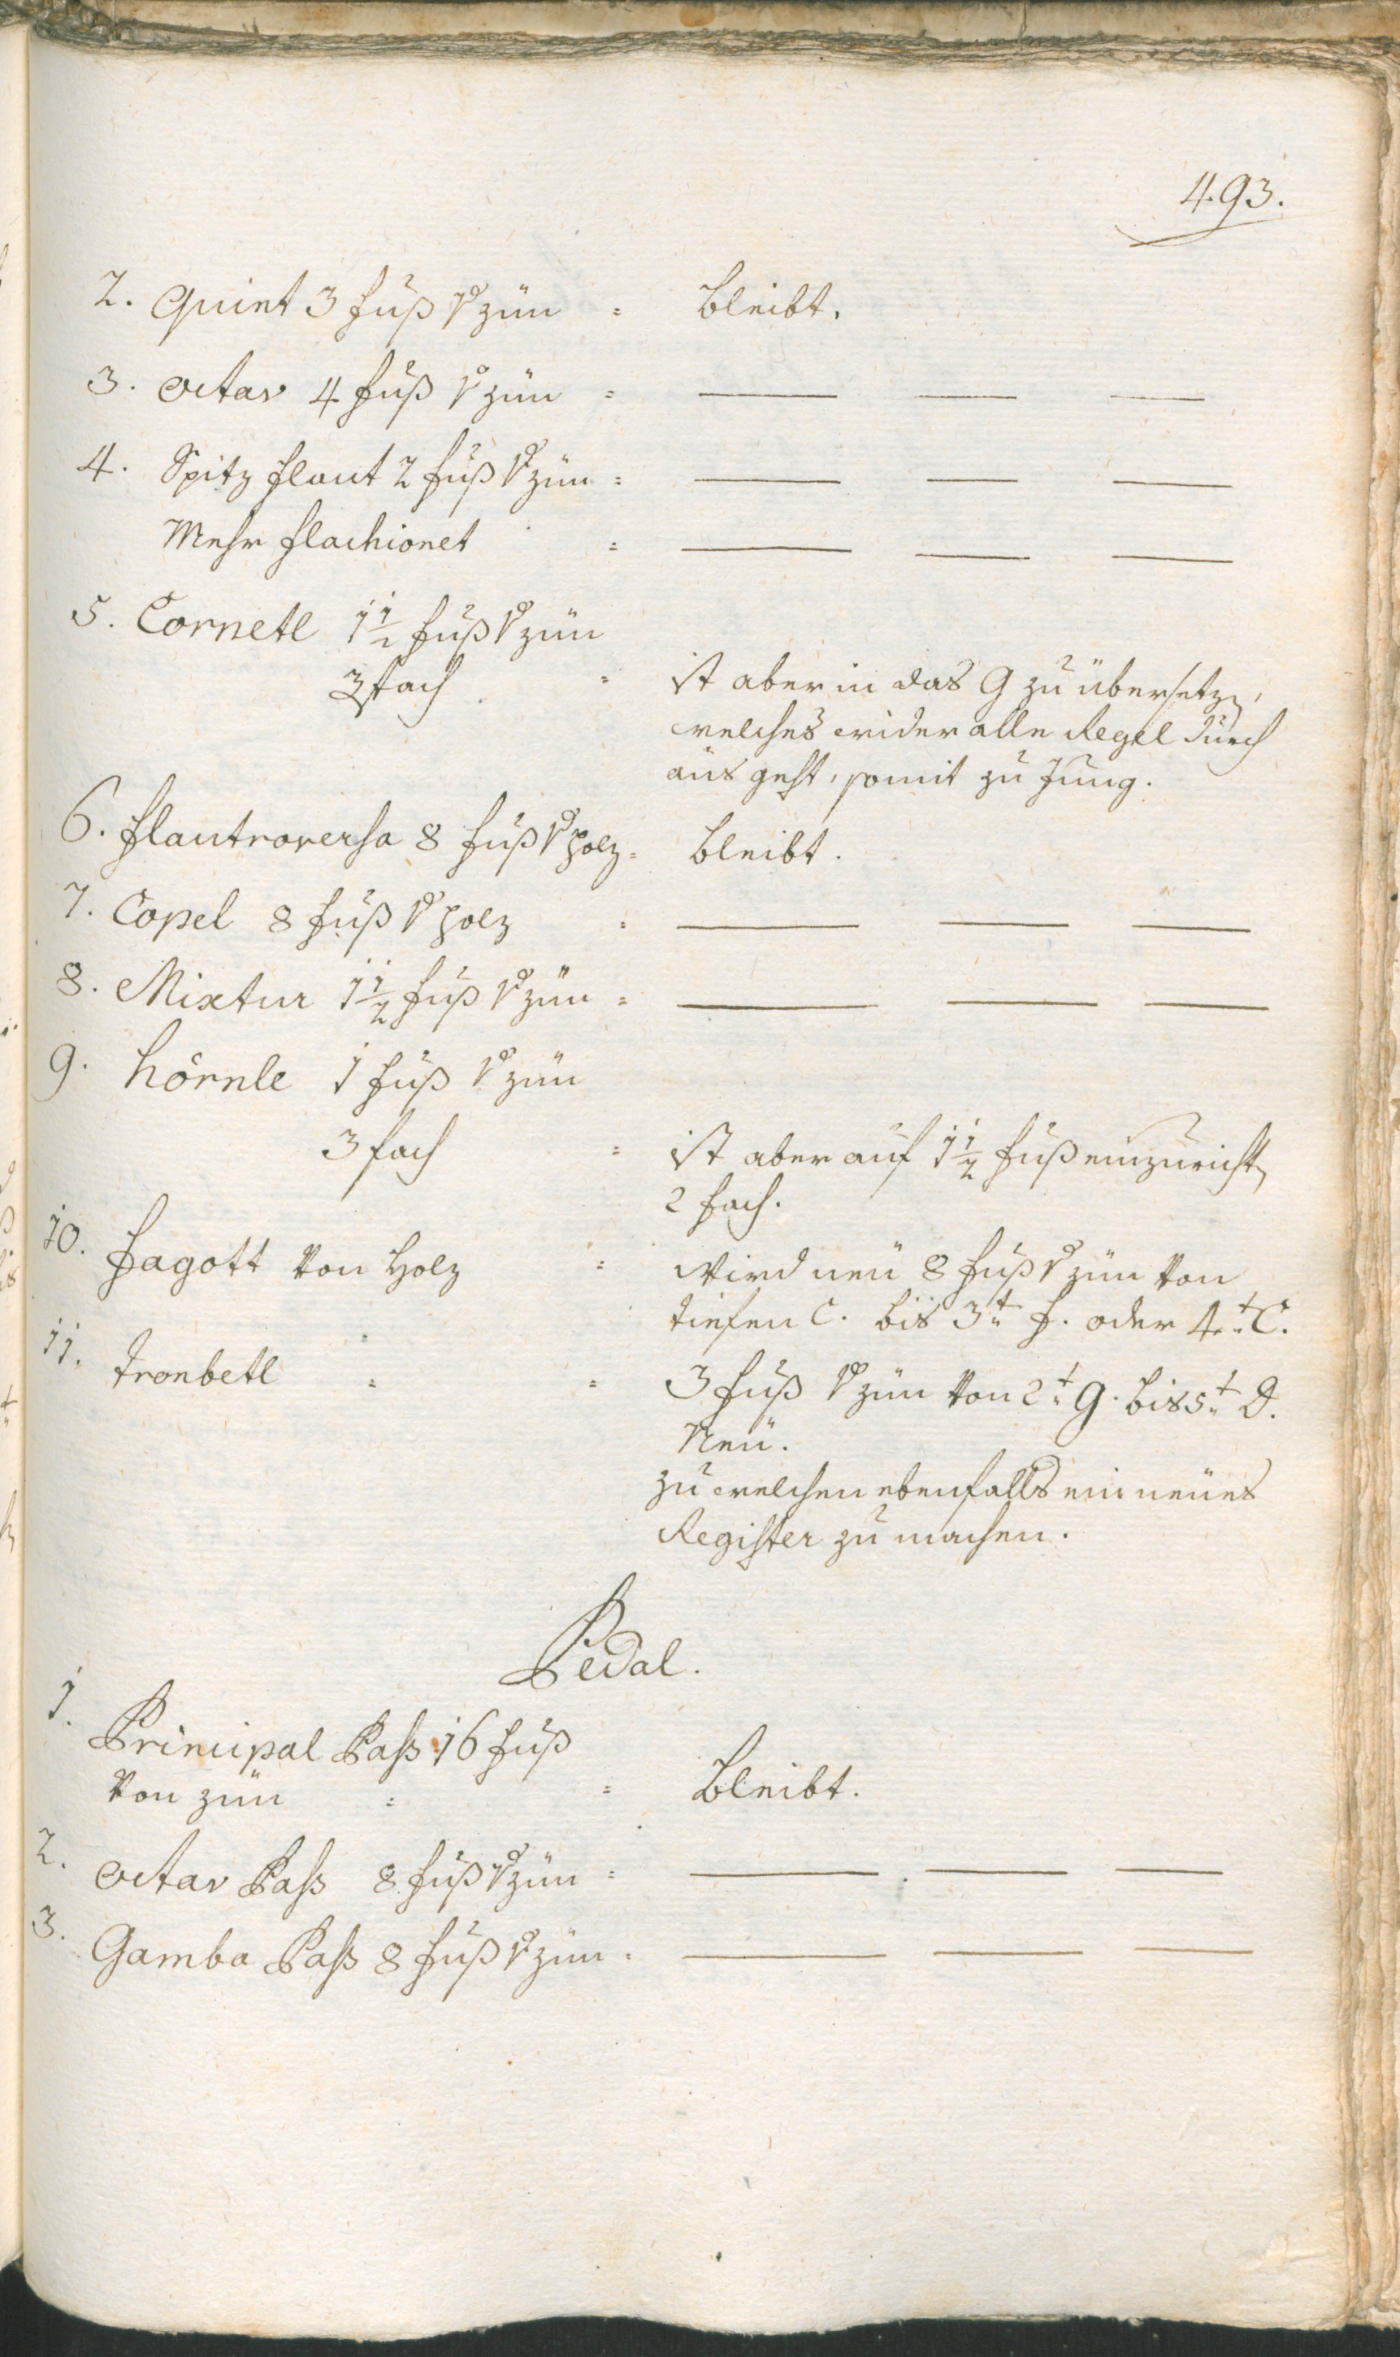 493.
2. Quint 3 fuß v zün = bleibt.
3. octav 4 fuß v zün = — — —
4. Spitz flaut 2 fuß v zün = — — —
Mehr flachionet = — — —
5. Cornetl 1 1/2 fuß v zün
3fach = ist aber in das G zu übersetzen,
welches wider alle Regel durch
aus geht, somit zu jung.
6. flautraversa 8 fuß v holz = bleibt.
7. Copel 8 fuß v holz = — — —
8. Mixtur 1 1/2 fuß v zün = — — —
9. hörnle 1 fuß v zün
3 fach = ist aber auf 1 1/2 fuß einzurichten
2 fach.
10. fagott von Holz = wird neü 8 fuß v zün von
tiefen C. bis 3t f. oder 4t C.
11. tronbetl = = 3 fuß v zün von 2t g. bis 5t D.
Neü.
zu welchen ebenfalls ein neües
Register zu machen.
Pedal.
1. Principal Paß 16 fuß
von zün = = bleibt.
2. octav Paß 8 fuß v zün = — — —
3. Gamba Paß 8 fuß v zün = — — —